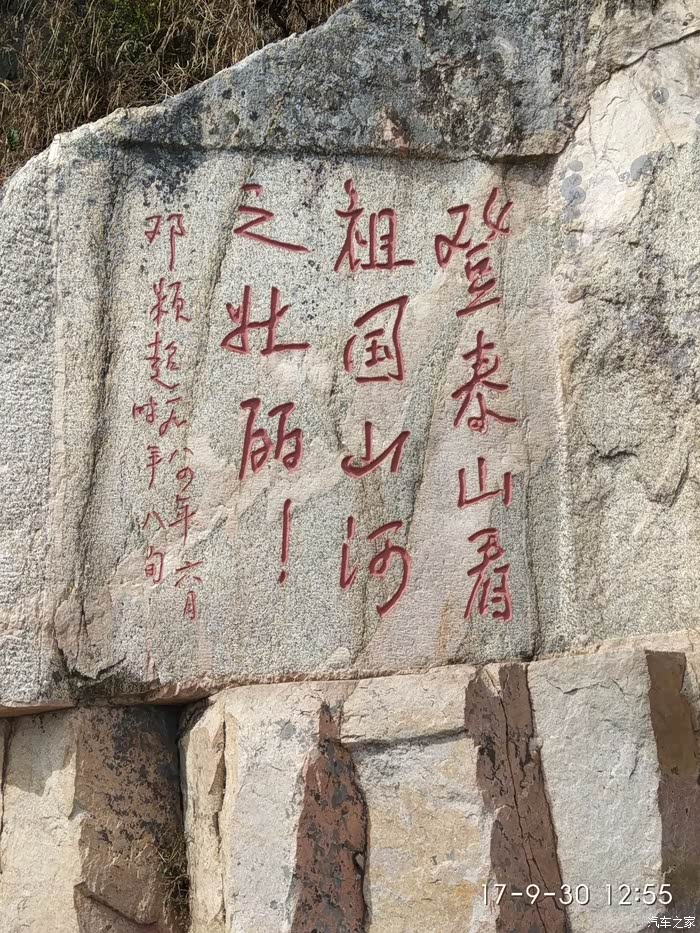 登泰山看
祖国山河
之壮丽！
邓颖超一九八四年六月
时年八旬
17-9-30 12:55
汽车之家